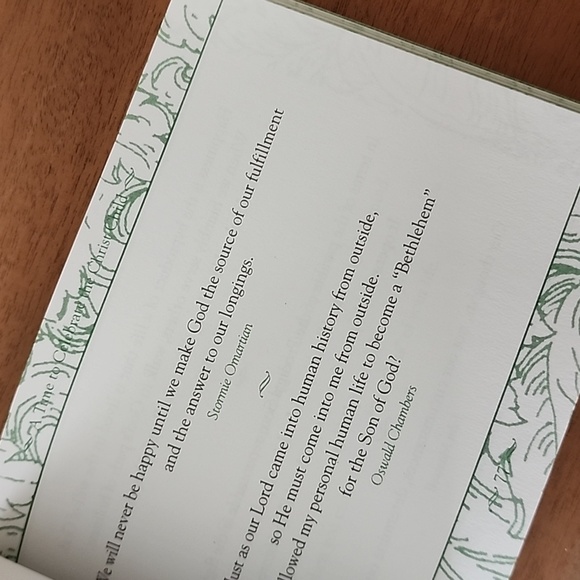 A Time to Celebrate the Christ Child
We will never be happy until we make God the source of our fulfillment
and the answer to our longings.
Stormie Omartian
Just as our Lord came into human history from outside,
so He must come into me from outside.
allowed my personal human life to become a “Bethlehem”
for the Son of God?
Oswald Chambers